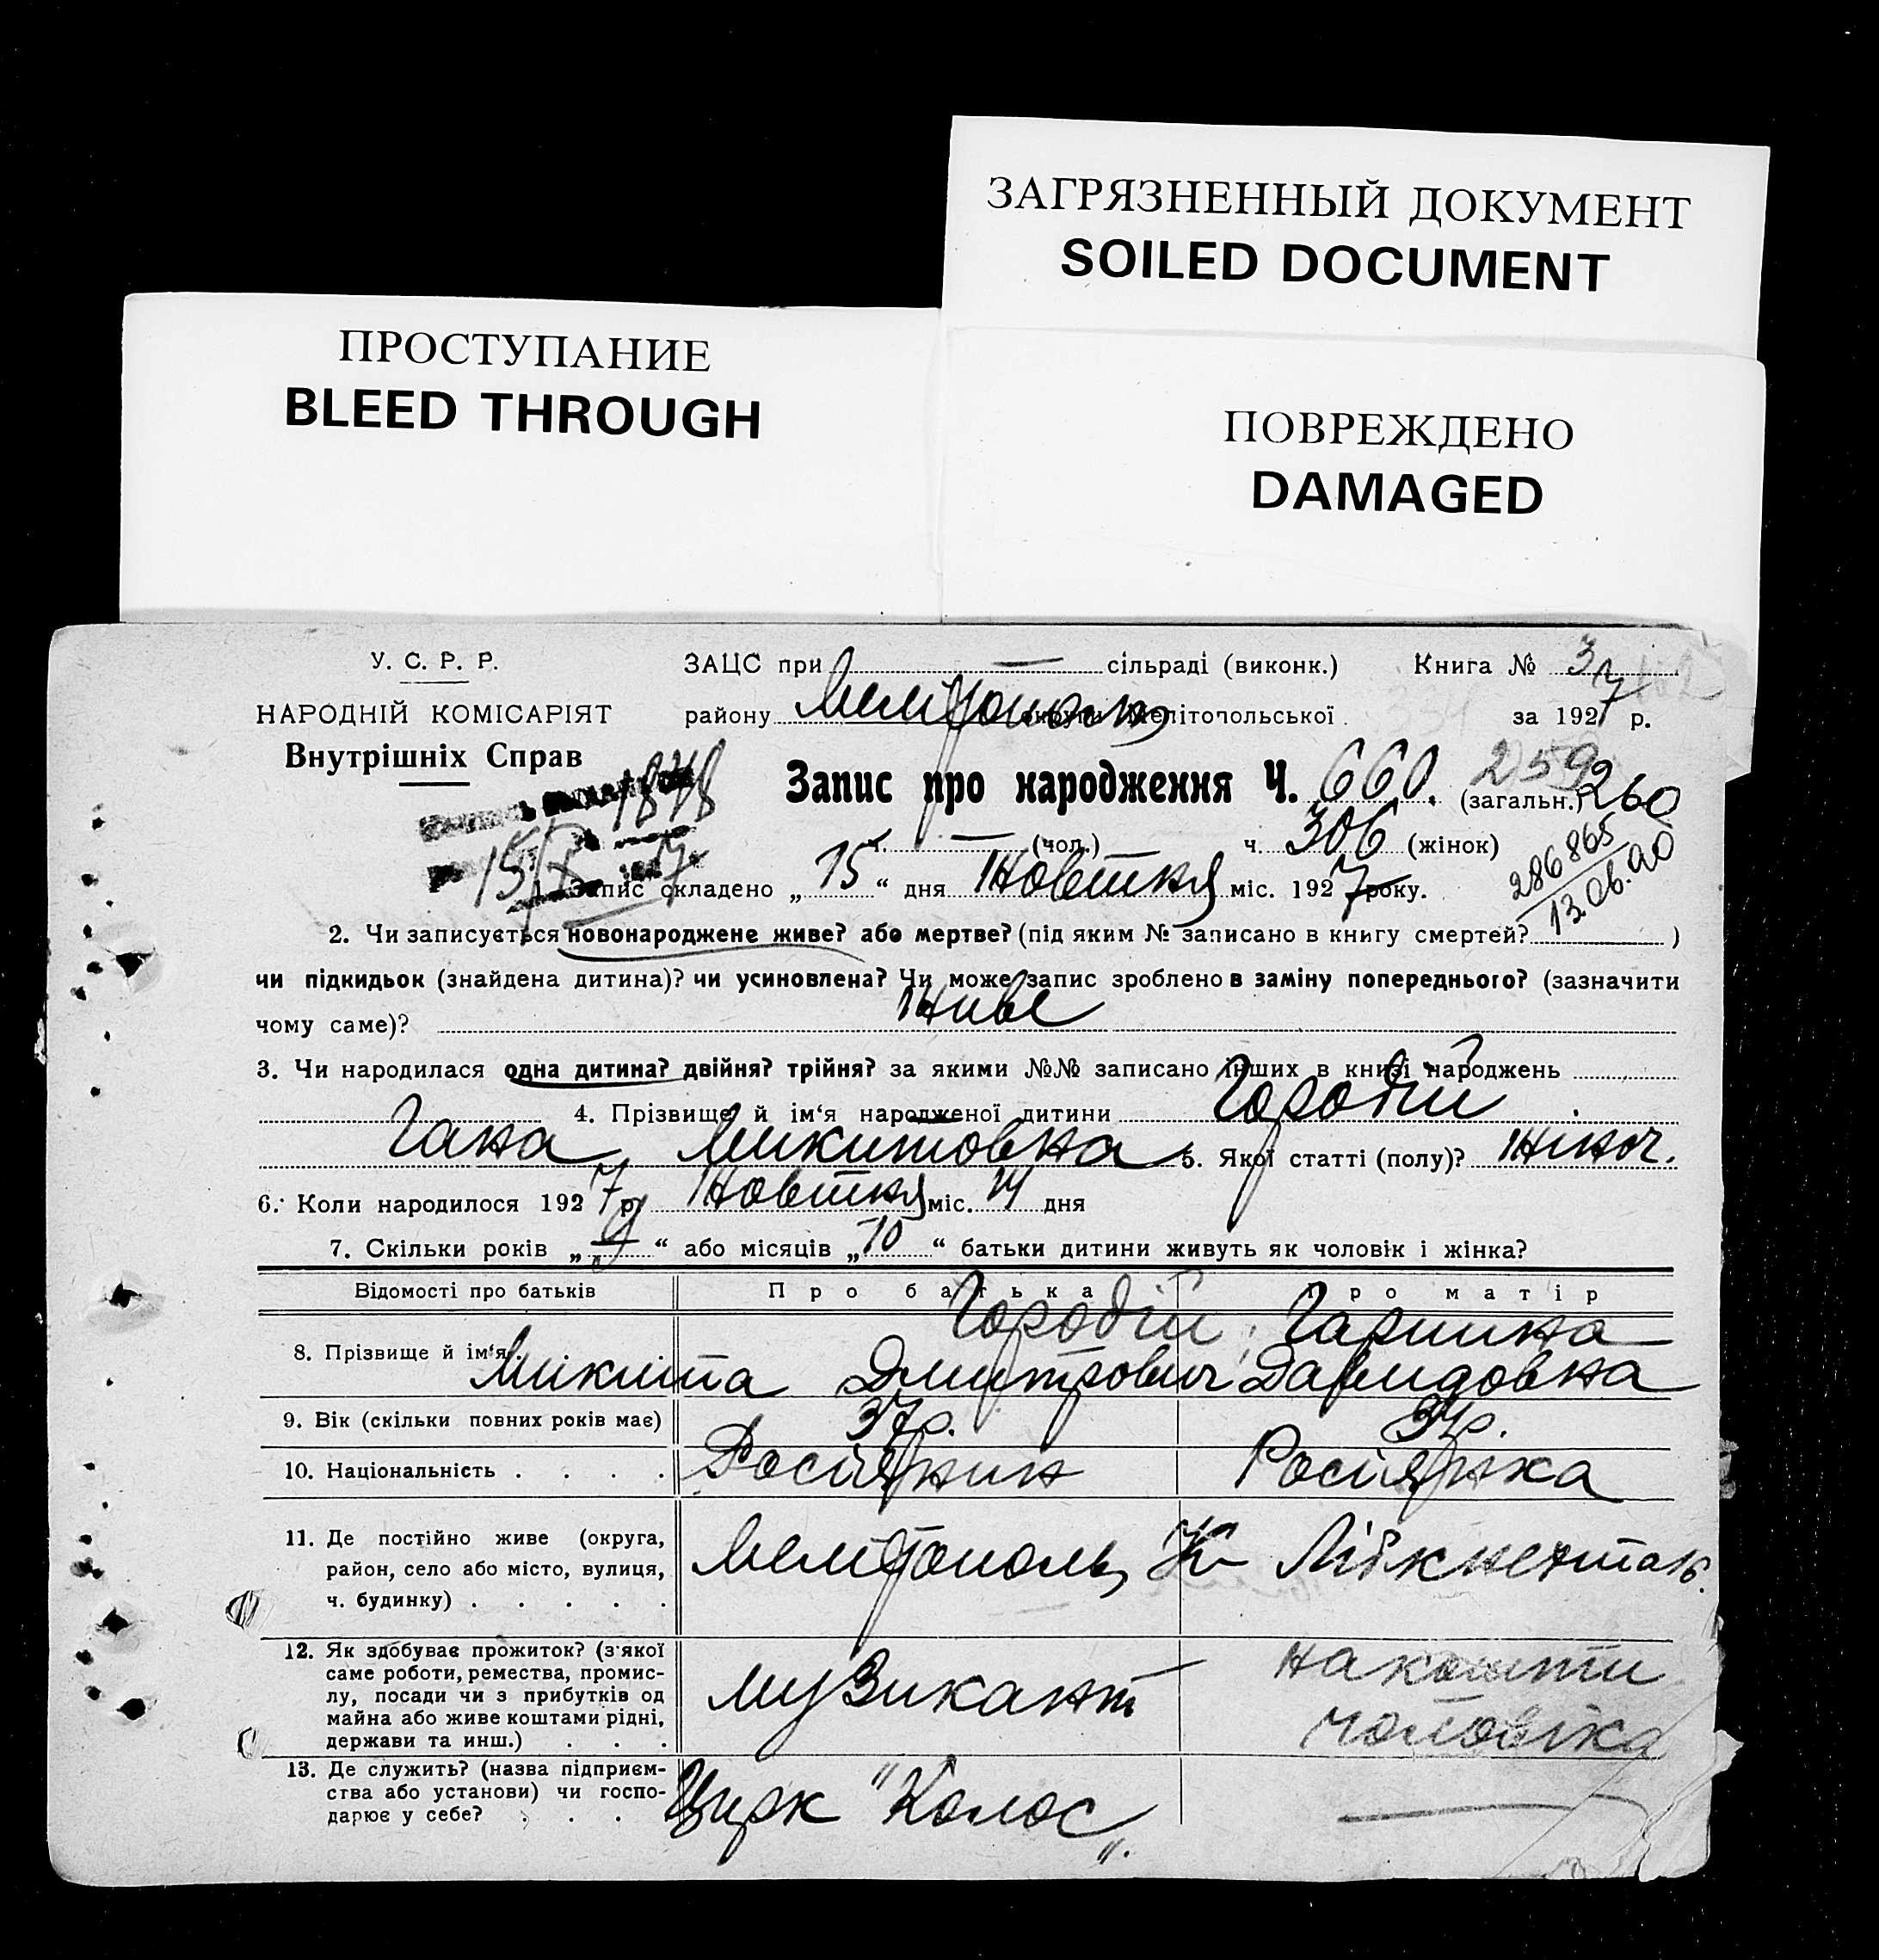 ЗАГРЯЗНЕННЫЙ ДОКУМЕНТ
SOILED DOCUMENT
ПРОСТУПАНИЕ
BLEED THROUGH
ПОВРЕЖДЕНО
DAMAGED
У. С. Р. Р.
НАРОДНІЙ КОМІСАРІЯТ
Внутрішніх Справ
ЗАЦС при — сільраді (виконк.) Книга №
району округи Мелітопольської за 1927 р.
1878
Запис про народження Ч. 660. (загальн.) 259 260
ч. — (чол.) ч. 306 (жінок)
286865
13.06.90
1. Запис складено „15“ дня Жовтня міс. 1927 року.
2. Чи записується новонароджене живе? або мертве? (під яким № записано в книгу смертей? )
чи підкидьок (знайдена дитина)? чи усиновлена? Чи може запис зроблено в заміну попереднього? (зазначити
чому саме)? Живе
3. Чи народилася одна дитина? двійня? трійня? за якими №№ записано інших в книзі народжень
4. Прізвище й ім‘я народженої дитини Городій
Гана Микитовна 5. Якої статті (полу)? Жіноч.
6. Коли народилося 1927 р. Жовтня міс. 14 дня
7. Скільки років „ “ або місяців „10“ батьки дитини живуть як чоловік і жінка?
Відомості про батьків Про батька Про матір
8. Прізвище й ім‘я Городій Гарпина
Микита Дмитрович Давидовна
9. Вік (скільки повних років має) 37р. 34р.
10. Національність . . . . Росіянин Росіянка
11. Де постійно живе (округа,
район, село або місто, вулиця,
ч. будинку) . . . . . Мелітополь, К Лібкнехта
12. Як здобуває прожиток? (з'якої
саме роботи, ремества, промис-
лу, посади чи з прибутків од
майна або живе коштами рідні,
держави та инш.) . . . музикант на кошти
чоловіка
13. Де служить? (назва підприєм-
ства або установи) чи госпо-
дарює у себе? . . . Цирк "Колос„. —